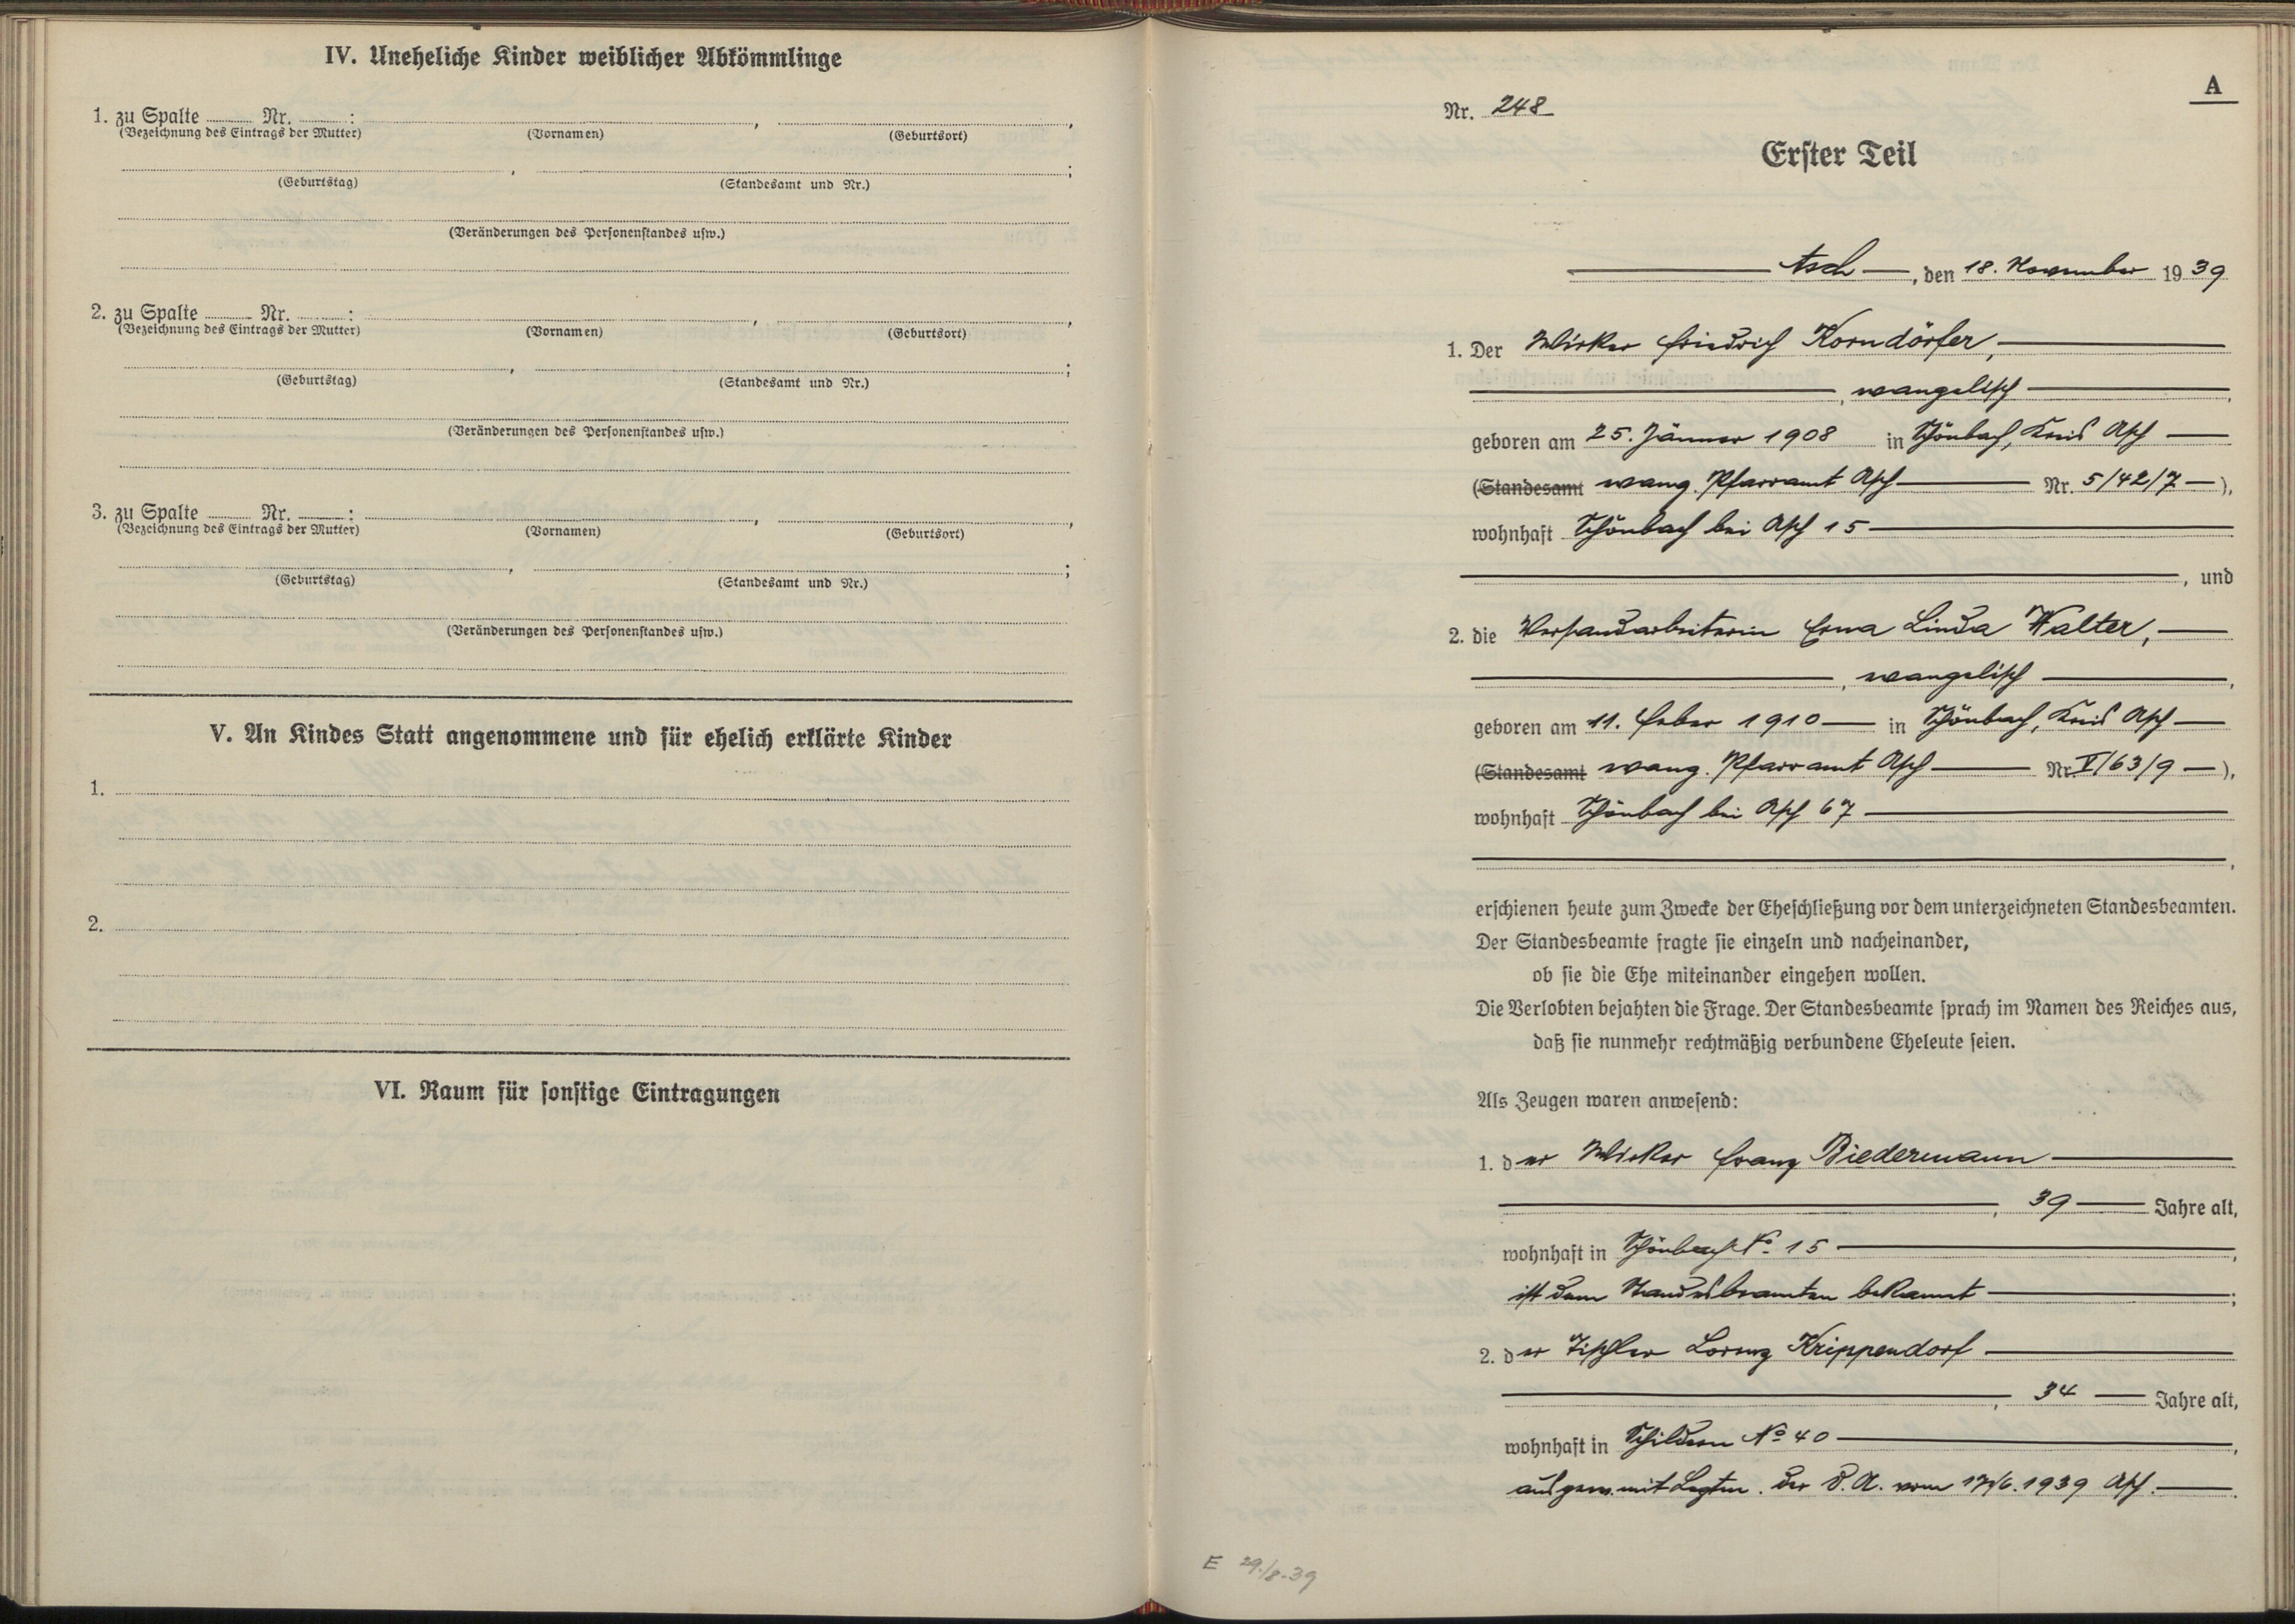 IV. Uneheliche Kinder weiblicher Abkömmlinge
1. zu Spalte ........ Nr. ........ : , ,
(Bezeichnung des Eintrags der Mutter) (Vornamen) (Geburtsort)
, ;
(Geburtstag) (Standesamt und Nr.)
(Veränderungen des Personenstandes usw.)
2. zu Spalte ........ Nr. ........ : , ,
(Bezeichnung des Eintrags der Mutter) (Vornamen) (Geburtsort)
, ;
(Geburtstag) (Standesamt und Nr.)
(Veränderungen des Personenstandes usw.)
3. zu Spalte ........ Nr. ........ : , ,
(Bezeichnung des Eintrags der Mutter) (Vornamen) (Geburtsort)
, ;
(Geburtstag) (Standesamt und Nr.)
(Veränderungen des Personenstandes usw.)
V. An Kindes Statt angenommene und für ehelich erklärte Kinder
1.
2.
VI. Raum für sonstige Eintragungen
A
Nr. 248
Erster Teil
Asch, den 18. November 1939
1. Der Wirker Friedrich Korndörfer,
, evangelisch,
geboren am 25. Jänner 1908 in Schönbach, Kreis Asch
(Standesamt evang. Pfarramt Asch Nr. 5/42/7),
wohnhaft Schönbach bei Asch 15
, und
2. die Versandarbeiterin Erna Linda Walter,
, evangelisch,
geboren am 11. Feber 1910 in Schönbach, Kreis Asch
(Standesamt evang. Pfarramt Asch Nr. V/63/9),
wohnhaft Schönbach bei Asch 67
,
erschienen heute zum Zwecke der Eheschließung vor dem unterzeichneten Standesbeamten.
Der Standesbeamte fragte sie einzeln und nacheinander,
ob sie die Ehe miteinander eingehen wollen.
Die Verlobten bejahten die Frage. Der Standesbeamte sprach im Namen des Reiches aus,
daß sie nunmehr rechtmäßig verbundene Eheleute seien.
Als Zeugen waren anwesend:
1. der Wirker Franz Biedermann
, 39 Jahre alt,
wohnhaft in Schönbach No. 15,
ist dem Standesbeamten bekannt;
2. der Tischler Lorenz Krippendorf
, 34 Jahre alt,
wohnhaft in Schildern No 40,
ausgew. mit Legtm. der vom 1939 Asch.
E 29./8.39